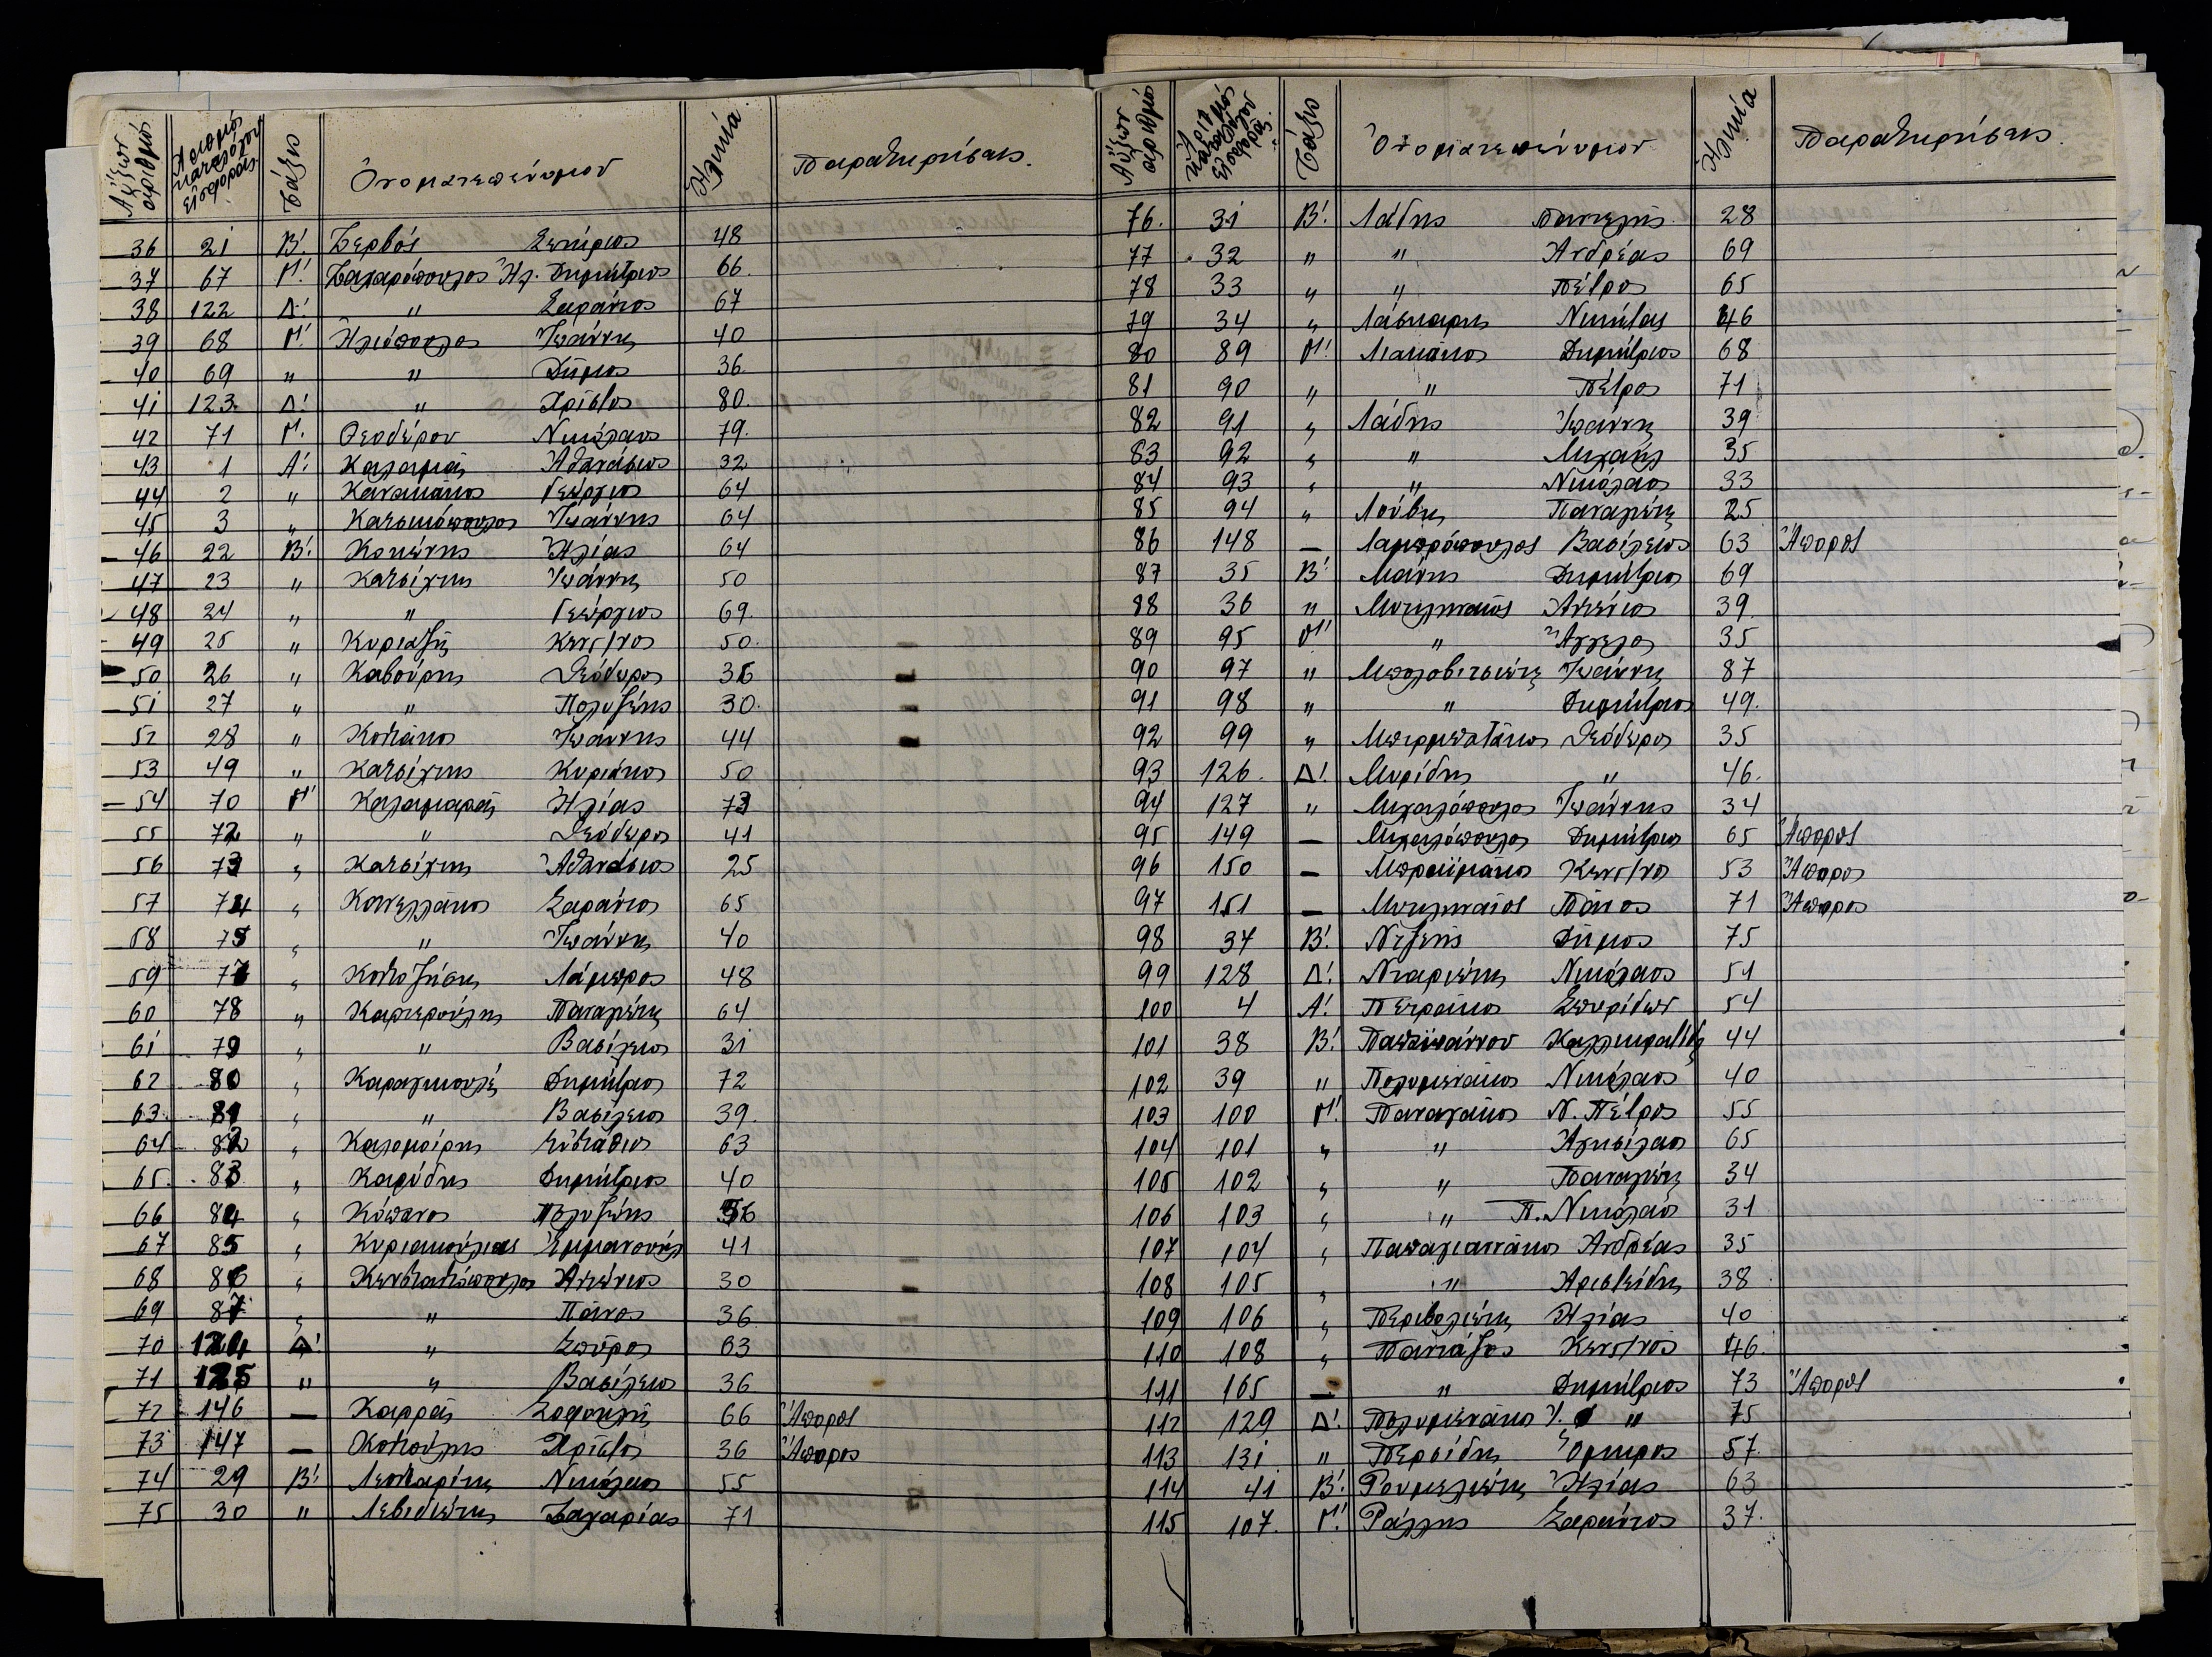 Αὔξων ἀριθμός Ἀριθμός καταλόγου εἰσφορᾶς Τάξις Ὀνοματεπώνυμον Ἡλικία Παρατηρήσεις.
36 21 Β! Ζερβός Σωτήριος 48
37 67 Γ! Ζαχαρόπουλος Ἠλ. Δημήτριος 66
38 122 Δ! " Σαράντος 67
39 68 Γ! Ἠλιόπουλος Ἰωάννης 40
40 69 " " Δῆμος 36
41 123 Δ! " Χρίστος 80
42 71 Γ! Θεοδώρου Νικόλαος 79
43 1 Α! Καλαμᾶς Ἀθανάσιος 32
44 2 " Γεώργιος 64
45 3 " Κατσικόπουλος Ἰωάννης 64
46 22 Β! Κοκώνης Ἠλίας 64
47 23 " Κατσίχτης Ἰωάννης 50
48 24 " " Γεώργιος 69
49 25 " Κυριαζῆς Κων/νος 50
50 26 " Καβούρης Θεόδωρος 36
51 27 " " Πολυζώης 30
52 28 " Κοτιάκος Ἰωάννης 44
53 49 " Κατσίχτης Κυριάκος 50
54 70 Γ! Καλαμαρᾶς Ἠλίας 73
55 72 " " Θεόδωρος 41
56 73 " Κατσίχτης Ἀθανάσιος 25
57 74 " Κανελλάκος Σαράντος 65
58 75 " " Ἰωάννης 40
59 77 " Λάμπρος 48
60 78 " Καρτερούλης Παναγιώτης 64
61 79 " " Βασίλειος 31
62 80 " Δημήτριος 72
63 81 " " Βασίλειος 39
64 82 " Καλομοίρης Εὐστάθιος 63
65 83 " Καρύδης Δημήτριος 40
66 84 " Κόπανος Πολυζώης
67 85 " Κυριακούλιας Ἐμμανουήλ 41
68 86 " Κωνσταντόπουλος Ἀντώνιος 30
69 87 " " Πάνος 36
70 124 Δ! " Σπῦρος 63
71 125 " " Βασίλειος 36
72 146 — Καρρᾶς Σοφοκλῆς 66 Ἄπορος
73 147 — Κοτσούλης Χρῖστος 36 Ἄπορος
74 29 Β! Λεονταρίτης Νικόλαος 55
75 30 " Λεβιδιώτης Ζαχαρίας 71
Αὔξων ἀριθμός Ἀριθμός καταλόγου εἰσφορᾶς Τάξις Ὀνοματεπώνυμον Ἡλικία Παρατηρήσεις.
76 31 Β! Λάδης Παντελῆς 28
77 32 " " Ἀνδρέας 69
78 33 " " Πέτρος 65
79 34 " Λάσκαρης Νικήτας 46
80 89 Γ! Λιακάκος Δημήτριος 68
81 90 " " Πέτρος 71
82 91 " Λάδης Ἰωάννης 39
83 92 " " Μιχαήλ 35
84 93 " " Νικόλαος 33
85 94 " Λούβης Παναγιώτης 25
86 148 — Λαμπρόπουλος Βασίλειος 63 Ἄπορος
87 35 Β! Μάνης Δημήτριος 69
88 36 " Μυτιληναῖος Ἀντώνιος 39
89 95 Γ! " Ἄγγελος 35
90 97 " Μπολοβιτσιώτης Ἰωάννης 87
91 98 " " Δημήτριος 49
92 99 " Θεόδωρος 35
93 126 Δ! Μυρίδης " 46
94 127 " Μιχαλόπουλος Ἰωάννης 34
95 149 — Μιχαλόπουλος Δημήτριος 65 Ἄπορος
96 150 — Μπραϊμάκος Κων/νος 53 Ἄπορος
97 151 — Μυτιληναῖος Πᾶνος 71 Ἄπορος
98 37 Β! Δῆμος 75
99 128 Δ! Νταριώτης Νικόλαος 51
100 4 Α! Πετράκος Σπυρίδων 54
101 38 Β! Παπαϊωάννου 44
102 39 " Πολυμενάκος Νικόλαος 40
103 100 Γ! Παναγάκος Ν. Πέτρος 55
104 101 " " Ἀγησίλαος 65
105 102 " " Παναγιώτης 34
106 103 " " Π. Νικόλαος 31
107 104 " Παπαγιαννάκος Ἀνδρέας 35
108 105 " " Ἀριστείδης 38
109 106 " Περιβολιώτης Ἠλίας 40
110 108 " Πανιάζος Κων/νος 46
111 165 — " Δημήτριος 73 Ἄπορος
112 129 Δ! Πολυμενάκος " 75
113 131 " Περσίδης Ὅμηρος 57
114 41 Β! Ρουμελιώτης Ἠλίας 63
115 107 Γ! Ράλλης Σαράντος 37